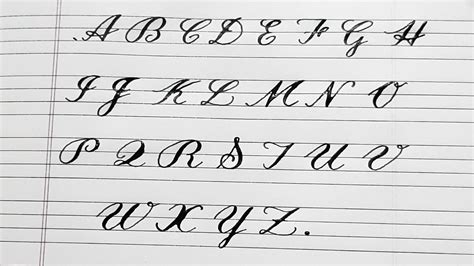 A B C D E F G H
I J K L M N O
P Q R S T U V
W X Y Z.